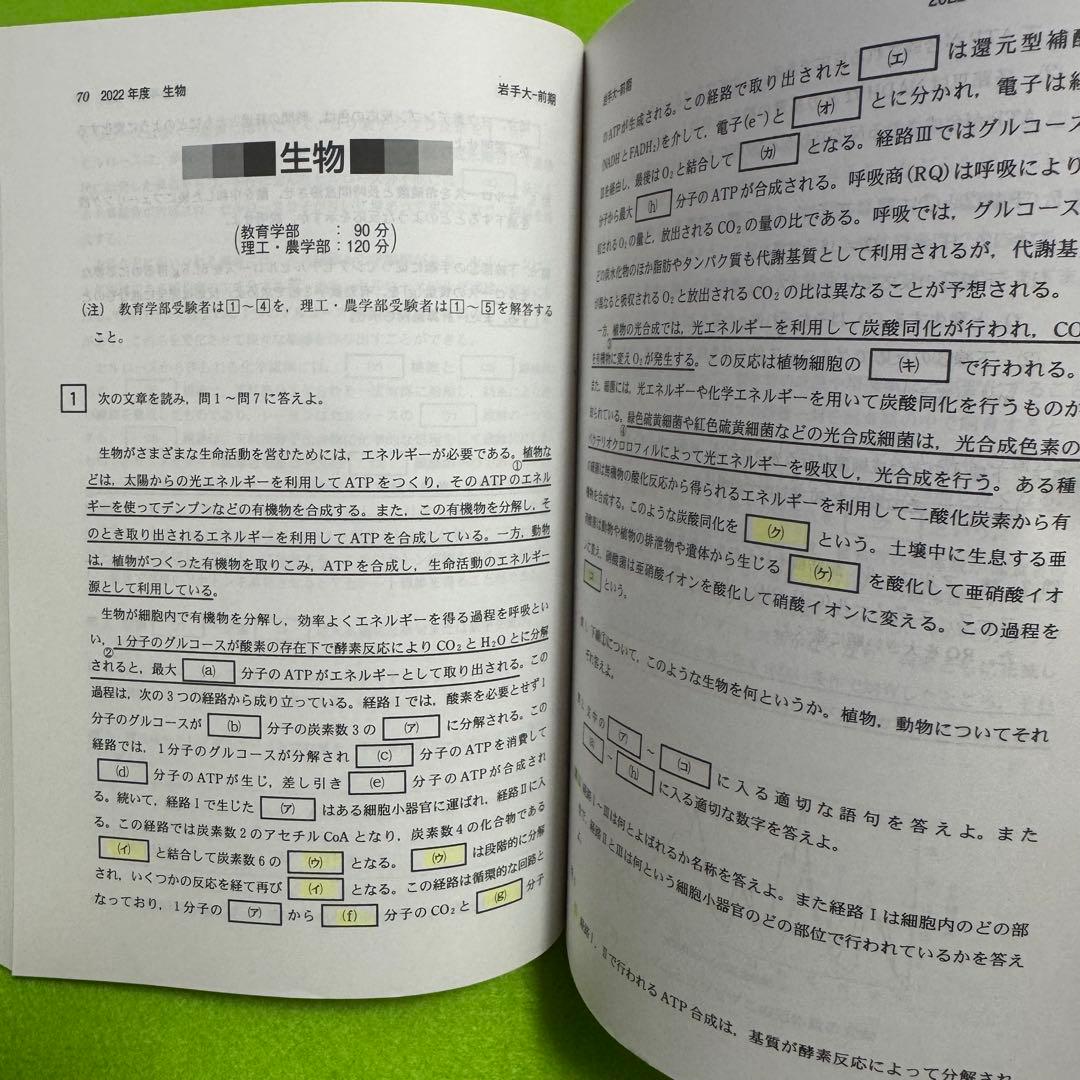 70 2022年度 生物
岩手大-前期
生物
(教育学部 : 90分
理工・農学部:120分)
(注) 教育学部受験者は1〜4を,理工・農学部受験者は1〜5を解答する
こと。
1 次の文章を読み,問1〜問7に答えよ。
生物がさまざまな生命活動を営むためには,エネルギーが必要である。植物な
①
どは,太陽からの光エネルギーを利用してATPをつくり,そのATPのエネル
ギーを使ってデンプンなどの有機物を合成する。また,この有機物を分解し,そ
のとき取り出されるエネルギーを利用してATPを合成している。一方,動物
は,植物がつくった有機物を取りこみ,ATPを合成し,生命活動のエネルギー
源として利用している。
生物が細胞内で有機物を分解し,効率よくエネルギーを得る過程を呼吸とい
い,1分子のグルコースが酸素の存在下で酵素反応によりCO₂とH₂Oとに分解
②
されると,最大 (a) 分子のATPがエネルギーとして取り出される。この
過程は,次の3つの経路から成り立っている。経路Ⅰでは,酸素を必要とせず1
分子のグルコースが (b) 分子の炭素数3の (ア) に分解される。この
経路では,1分子のグルコースが分解され (c) 分子のATPを消費して
(d) 分子のATPが生じ,差し引き (e) 分子のATPが合成され
る。続いて,経路Ⅰで生じた (ア) はある細胞小器官に運ばれ,経路Ⅱに入
る。この経路では炭素数2のアセチルCoAとなり,炭素数4の化合物である
(イ) と結合して炭素数6の (ウ) となる。 (ウ) は段階的に分解
され,いくつかの反応を経て再び (イ) となる。この経路は循環的な回路と
なっており,1分子の (ア) から (f) 分子のCO₂と (g) 分子
2022
岩手大-前期
のATPが生成される。この経路で取り出された (エ) は還元型補酵
(NADHとFADH₂)を介して,電子(e⁻)と (オ) とに分かれ,電子は経
Ⅲを経由し,最後はO₂と結合して (カ) となる。経路Ⅲではグルコース
分子から最大 (h) 分子のATPが合成される。呼吸商(RQ)は呼吸により
収されるO₂の量と,放出されるCO₂の量の比である。呼吸では,グルコース
どの炭水化物のほか脂肪やタンパク質も代謝基質として利用されるが,代謝基
が異なると吸収されるO₂と放出されるCO₂の比は異なることが予想される。
一方,植物の光合成では,光エネルギーを利用して炭酸同化が行われ,CO
③
を有機物に変えO₂が発生する。この反応は植物細胞の (キ) で行われる。
また,細菌には,光エネルギーや化学エネルギーを用いて炭酸同化を行うものが
知られている。緑色硫黄細菌や紅色硫黄細菌などの光合成細菌は,光合成色素の
④
バクテリオクロロフィルによって光エネルギーを吸収し,光合成を行う。ある種
の細菌は無機物の酸化反応から得られるエネルギーを利用して二酸化炭素から有
機物を合成する。このような炭酸同化を (ク) という。土壌中に生息する亜
硝酸菌は動物や植物の排泄物や遺体から生じる (ケ) を酸化して亜硝酸イオ
ンに変え,硝酸菌は亜硝酸イオンを酸化して硝酸イオンに変える。この過程を
コ という。
下線①について,このような生物を何というか。植物,動物についてそれ
ぞれ答えよ。
文中の (ア) 〜 (コ) に入る適切な語句を答えよ。また
(a) 〜 (h) に入る適切な数字を答えよ。
経路Ⅰ〜Ⅲは何とよばれるか名称を答えよ。また経路Ⅰは細胞内のどの部
経路ⅡとⅢは何という細胞小器官のどの部位で行われているかを答え
経路Ⅰ,Ⅱで行われるATP合成は,基質が酵素反応によって分解され